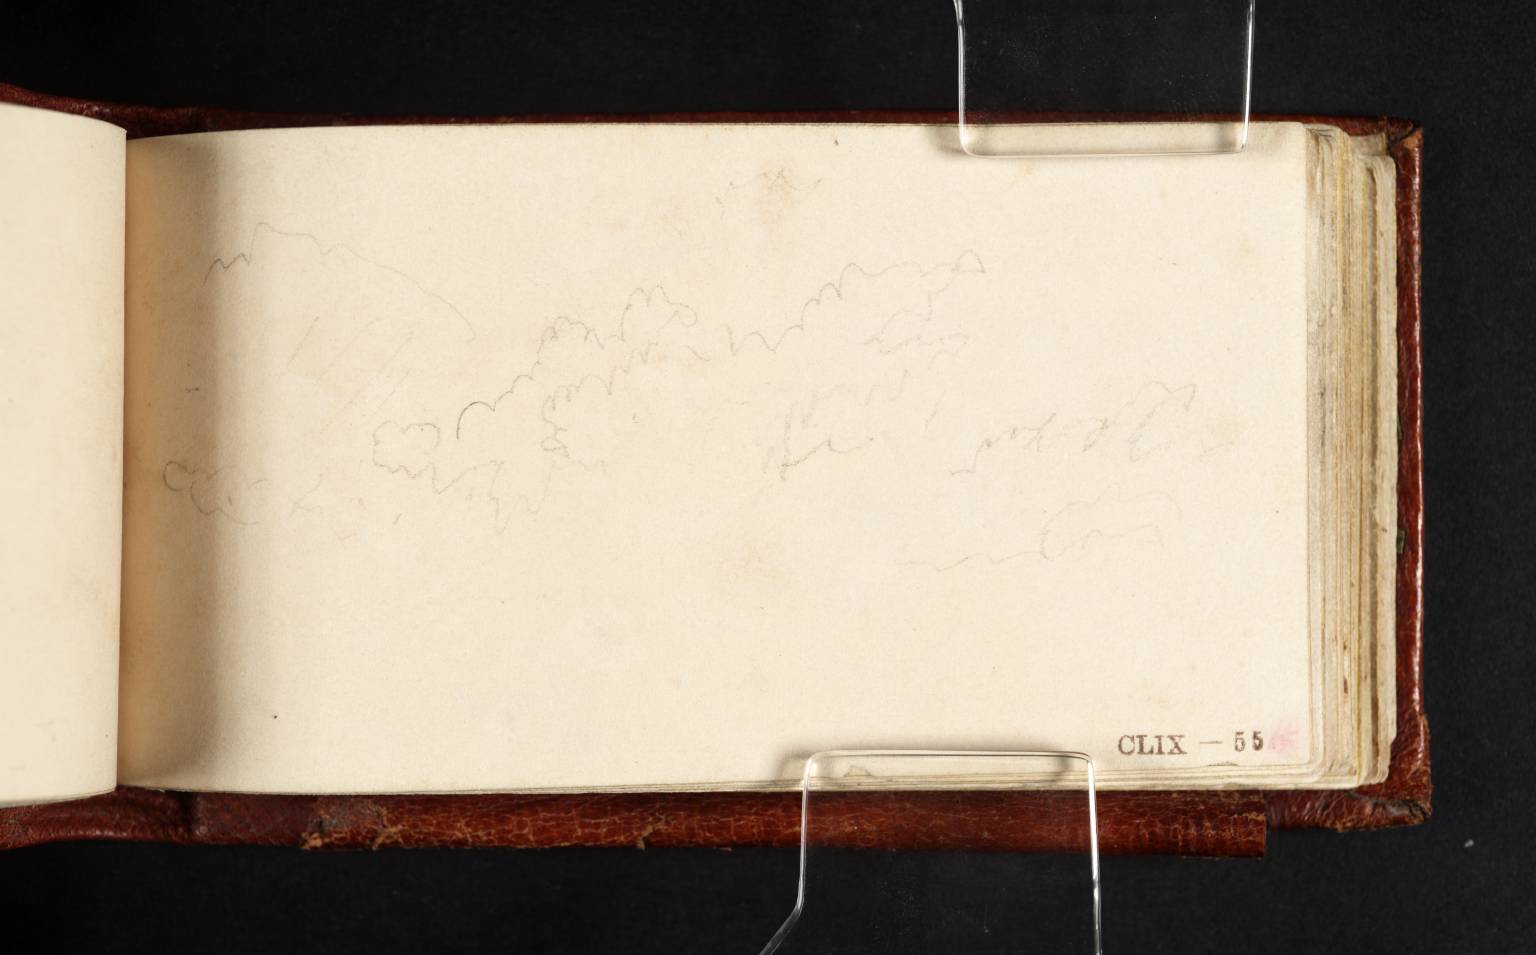 CLIX — 55